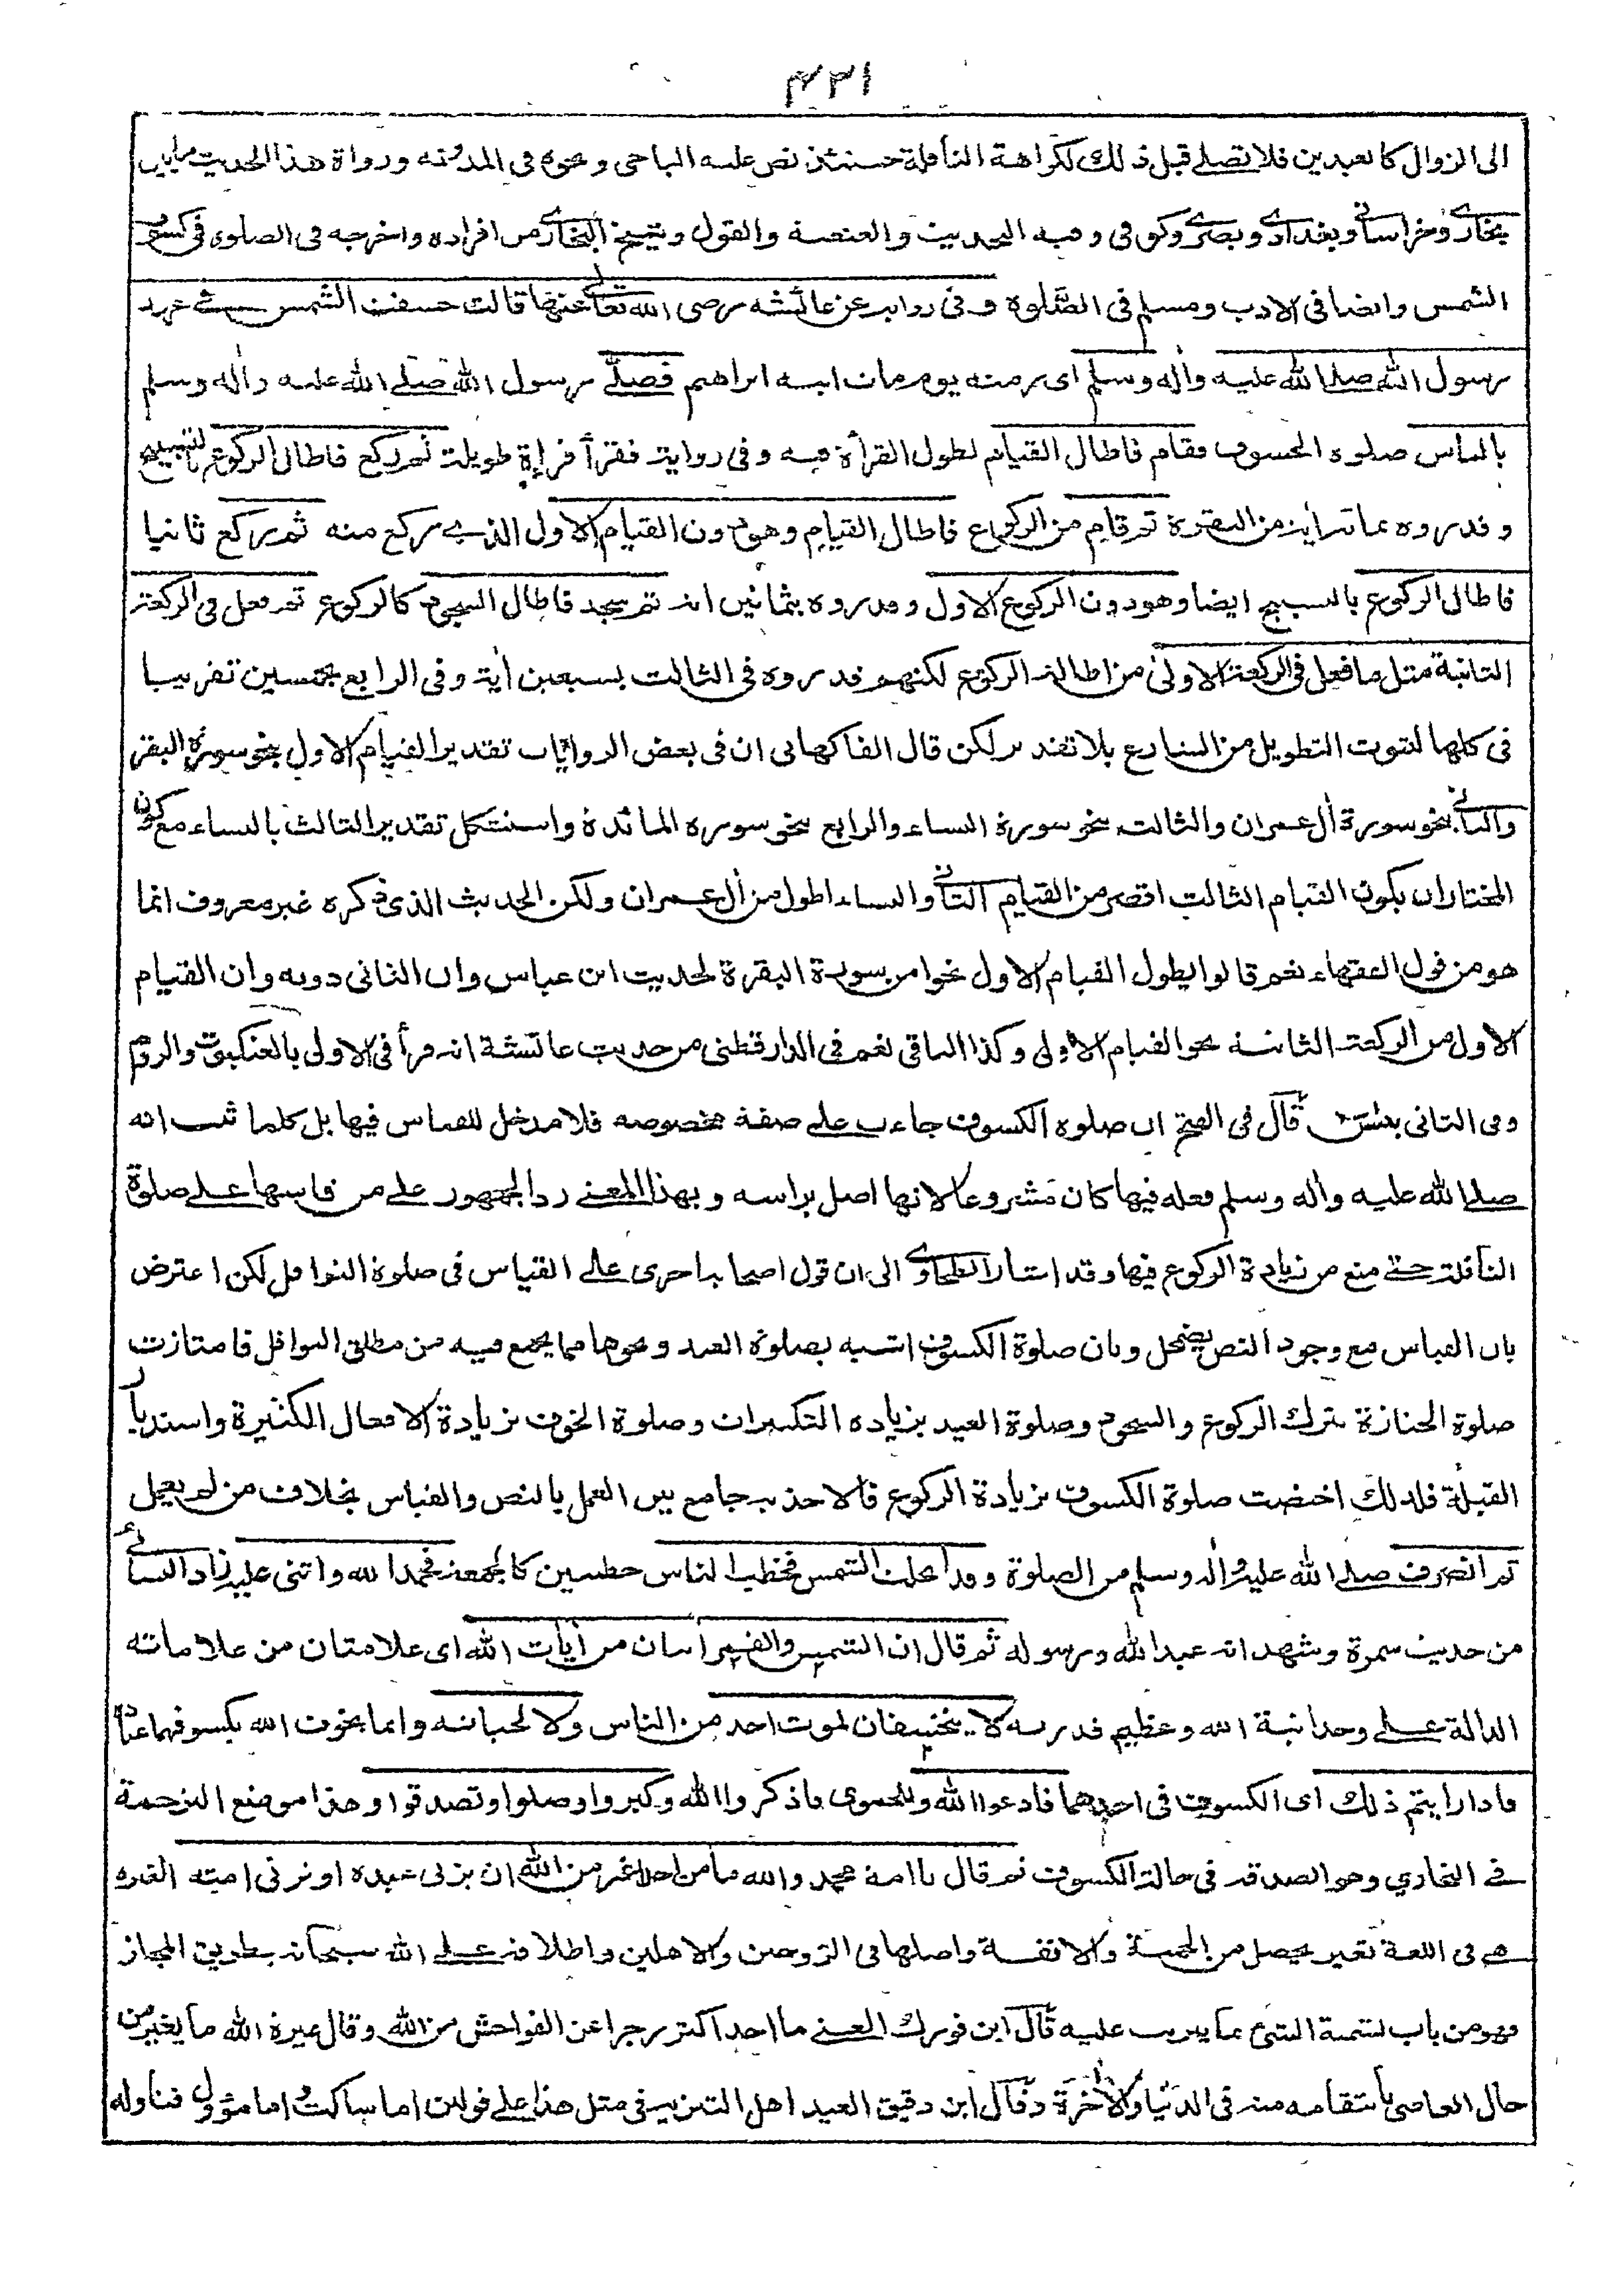 ٤٣١
الى الزوال كالعيدين فلا تصلے قبل ذلك لكراهة النافلة حينئذ نص عليه الباجى ونحوه فى المدونة ورواة هذا الحديث مابين
بخارے وخراسانے وبغدادے وبصرے وكوفى وفيه التحديث والعنعنة والقول وشيخ البخارے من افراده واخرجه فى الصلوة فى كسوف
الشمس وايضا فى الادب ومسلم فى الصلوة وفى رواية عن عائشه رضى الله تعالے عنها قالت خسفت الشمس فے عهد
رسول الله صلے الله عليه واٰله وسلم اى زمنه يوم مات ابنه ابراهيم فصلّے رسول الله صلے الله عليه واٰله وسلم
بالناس صلوة الخسوف فقام فاطال القيام لطول القرأة فيه وفى رواية فقرأ قراءة طويلة ثم ركع فاطال الركوع بالتسبيح
وقدروه بمائة اية من البقرة ثم قام من الركوع فاطال القيام وهو دون القيام الاول الذے ركع منه ثم ركع ثانيا
فاطال الركوع بالتسبيح ايضا وهو دون الركوع الاول وقدروه بثمانين اية ثم سجد فاطال السجود كالركوع ثم فعل فى الركعة
الثانية مثل ما فعل فى الركعة الاولىٰ من اطالة الركوع لكنهم قدروه فى الثالث بسبعين اٰية وفى الرابع بخمسين تقريبا
فى كلها لثبوت التطويل من الشارع بلا تقدير لكن قال الفاكهانى ان فى بعض الروايات تقدير القيام الاول بنحو سورة البقرة
والثانے بنحو سورة اٰل عمران والثالث بنحو سورة النساء والرابع بنحو سورة المائدة واستشكل تقدير الثالث بالنساء مع كون
المختار ان يكون القيام الثالث اقصر من القيام الثانے والنساء اطول من اٰل عمران ولكن الحديث الذى ذكره غير معروف انما
هو من قول الفقهاء نعم قالوا يطول القيام الاول نحوا من سورة البقرة لحديث ابن عباس وان الثانى دونه وان القيام
الاول من الركعة الثانية نحو القيام الاولى وكذا الباقى نعم فى الدارقطنى من حديث عائشة انه قرأ فى الاولى بالعنكبوت والروم
وفى الثانى بيٰسٓ قال فى الفتح ان صلوة الكسوف جاءت علے صفة مخصوصه فلا مدخل للقياس فيها بل كلما ثبت انه
صلے الله عليه واٰله وسلم فعله فيها كان مشروعا لانها اصل براسه وبهذا المعنے رد الجمهور علے من قاسها علے صلوة
النافلة حتے منع من زيادة الركوع فيها وقد اشار الطحاوے الى ان قول اصحابه احرى علے القياس فى صلوة النوافل لكن اعترض
بان القياس مع وجود النص يضمحل وبان صلوة الكسوف اشبه بصلوة العيد ونحوها مما يجمع فيه من مطلق النوافل فامتازت
صلوة الجنازة بترك الركوع والسجود وصلوة العيد بزيادة التكبيرات وصلوة الخوف بزيادة الافعال الكثيرة واستدبار
القبلة فلذلك اختصت صلوة الكسوف بزيادة الركوع فالاخذ به جامع بين العمل بالنص والقياس بخلاف من لم يعمل
ثم انصرف صلے الله عليه واٰله وسلم من الصلوة وقد انجلت الشمس فخطب الناس خطبتين كالجمعة فحمد الله واثنى عليه زاد النسائے
من حديث سمرة وشهد انه عبد الله ورسوله ثم قال ان الشمس والقمر اٰيتان من اٰيات الله اى علامتان من علاماته
الدالة علے وحدانية الله وعظيم قدرته لا يخسفان لموت احد من الناس ولا لحياته وانما يخوف الله بكسوفهما عباده
فاذا رايتم ذلك اى الكسوف فى احدهما فادعوا الله وللحموى فاذكروا الله وكبروا وصلوا وتصدقوا وهذا موضع الترجمة
فے البخاري وهو الصدقة فى حالة الكسوف ثم قال يا امة محمد والله ما من احد اغير من الله ان يزنى عبده او تزنى امته الغيرة
هے فى اللغة تغير يحصل من الحمية والانفة واصلها فى الزوجين والاهلين واطلاقه علے الله سبحانه بطريق المجاز
فهو من باب تسمية الشئ بما يترتب عليه قال ابن فورك المعنے ما احد اكثر زجرا عن الفواحش من الله وقال غيرة الله ما يغير من
حال العاصى بانتقامه منه فى الدنيا والاٰخرة وقال ابن دقيق العيد اهل التنزيه فى مثل هذا علے قولين اما ساكت واما مؤول فتاوله